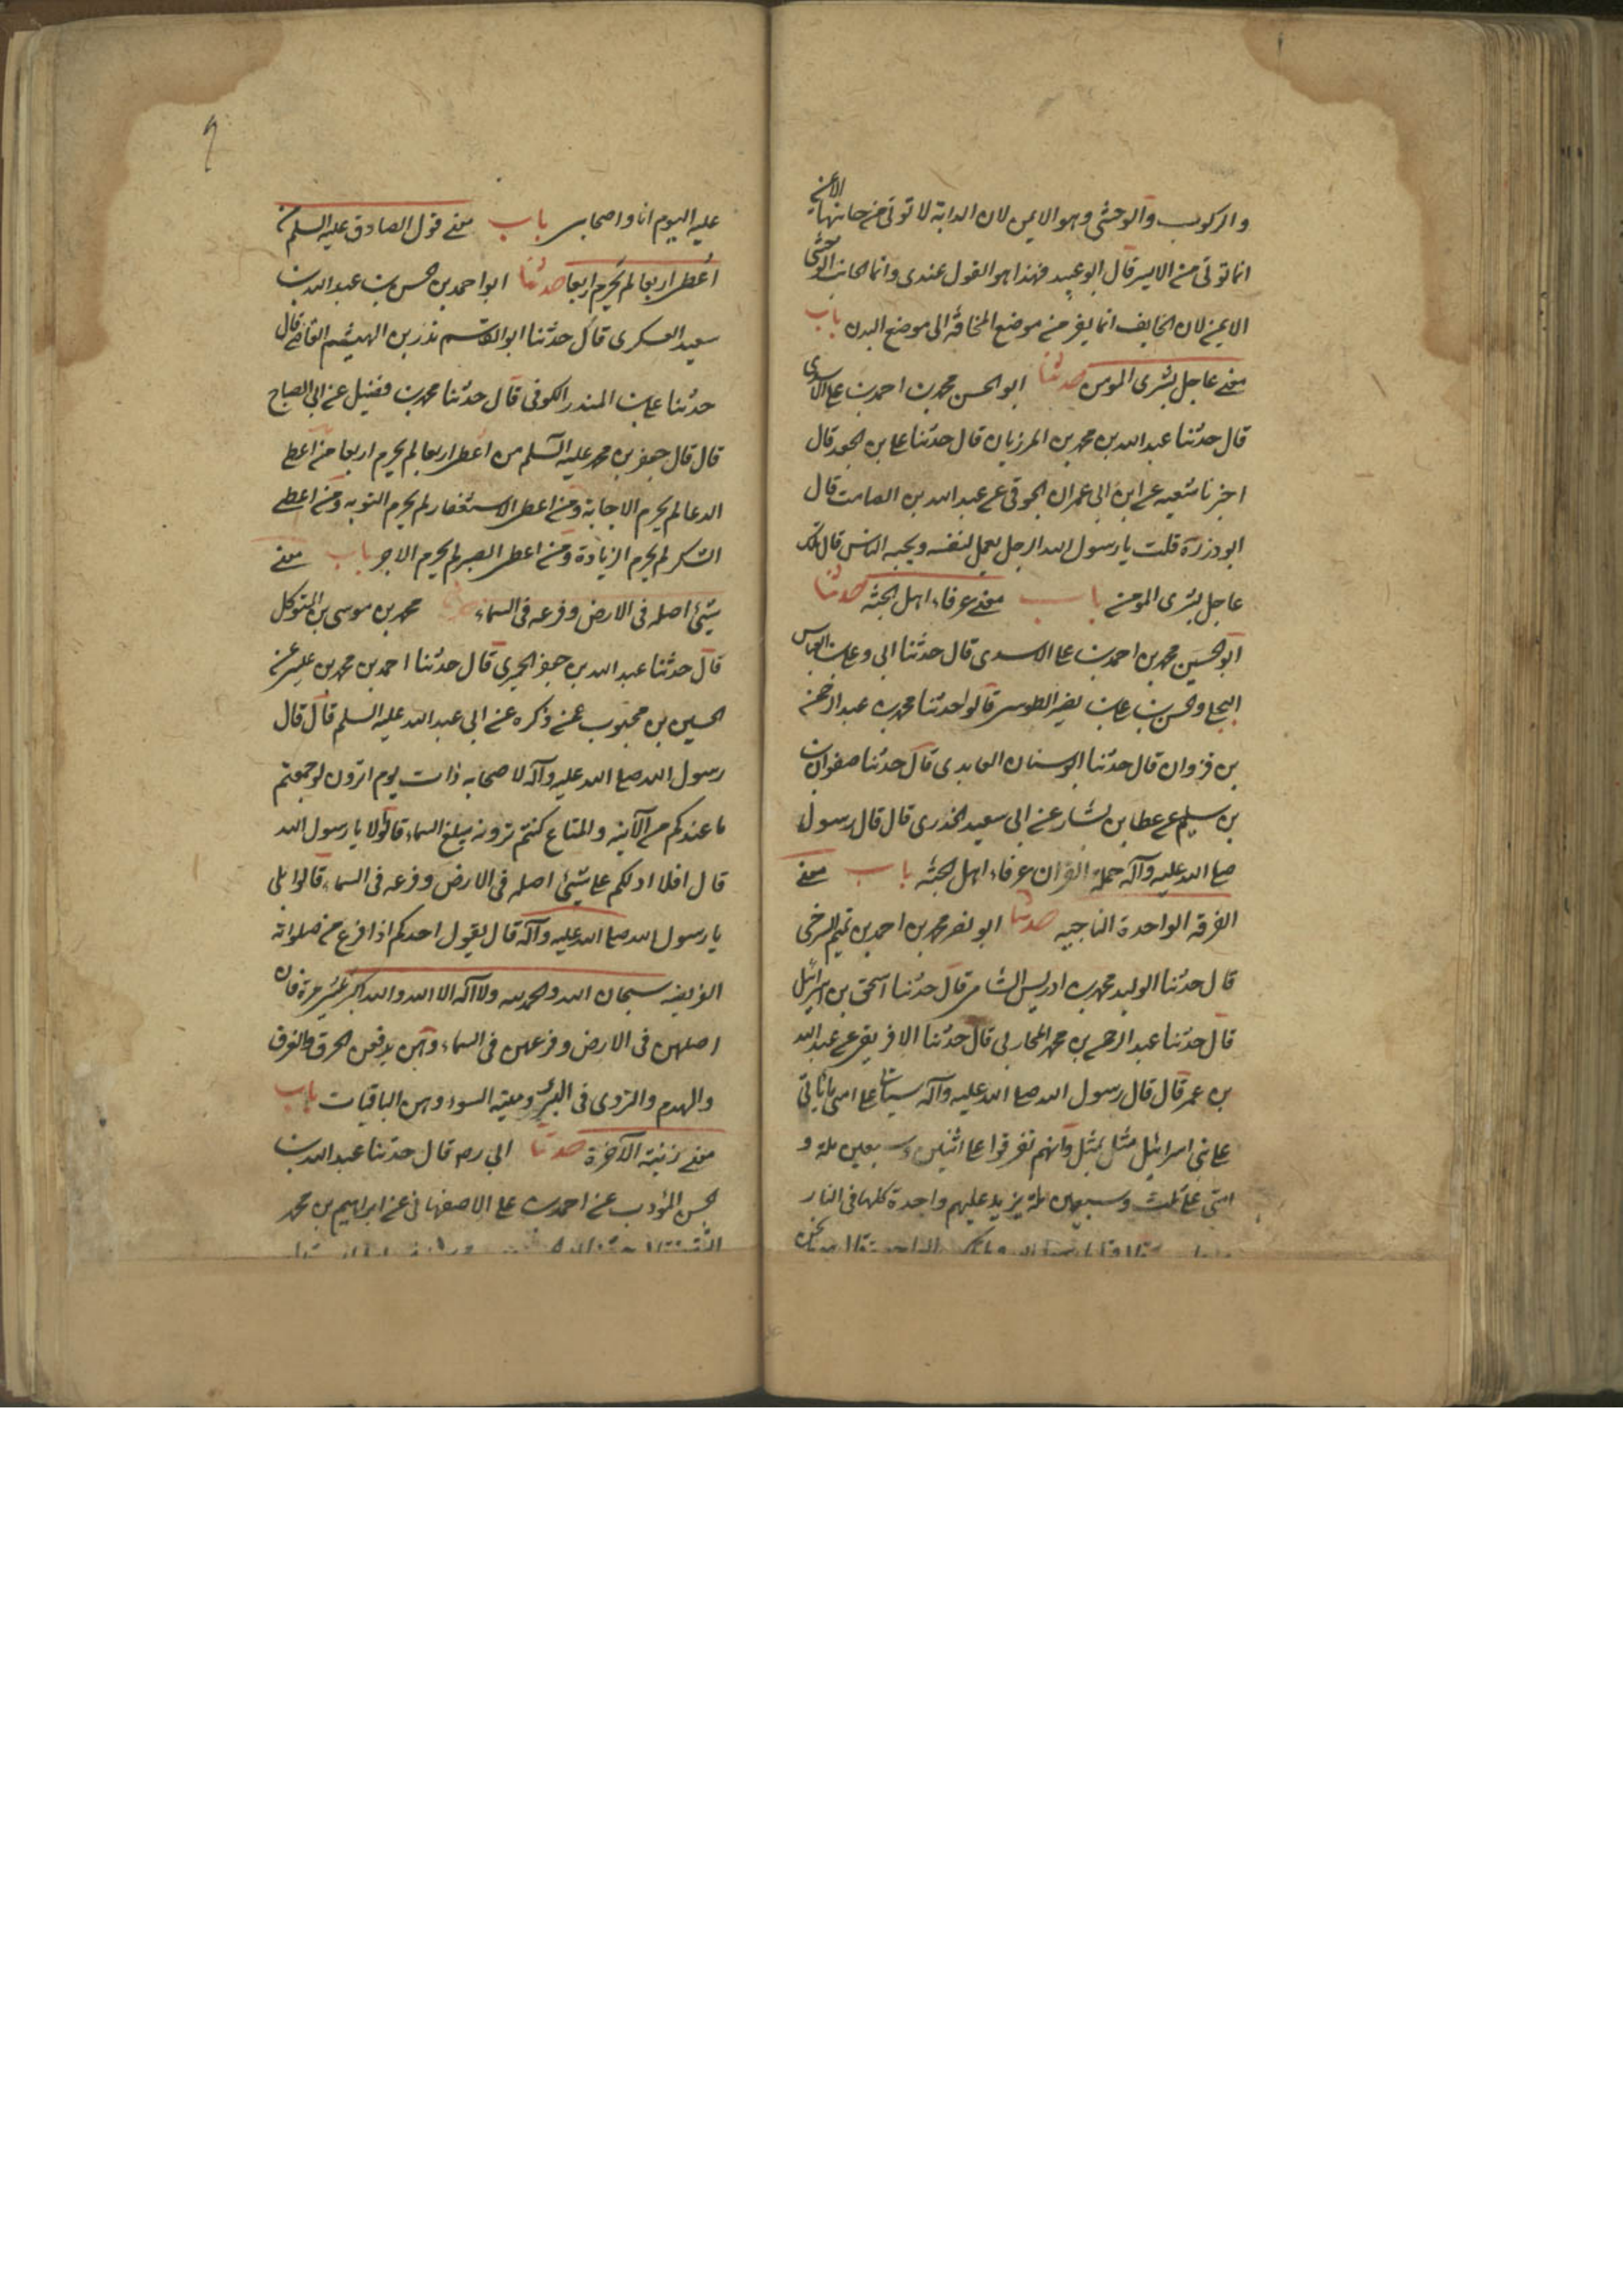 والركوب والوحشى وهو الايمن لان الدابة لا توتى من جانبها الايمن
انما توتى من الايسر قال ابو عبيد فهذا هو القول عندى وانما الجانب الوحشى
الايمن لان الخايف انما يفر من موضع المخافة الى موضع البدن باب
معنى عاجل بشرى المومن حدثنا ابو الحسن محمد بن احمد بن على الاسدى
قال حدثنا عبد الله بن محمد بن المرزبان قال حدثنا على بن الجعد قال
اخبرنا شعبه عن ابن ابى عمران الجوفى عن عبد الله بن الصامت قال
ابو ذر ره قلت يا رسول الله الرجل يعمل لنفسه ويحبه الناس قال تلك
عاجل بشرى المومن باب معنى عرفاء اهل الجنة حدثنا
ابو الحسين محمد بن احمد بن على الاسدى قال حدثنا ابى وعلى بن العباس
البجلى والحسن بن على بن نصر الطوسى قالوا حدثنا محمد بن عبد الرحمن
بن غزوان قال حدثنا ابو سنان العابدى قال حدثنا صفوان
بن سليم عن عطا بن يشار عن ابى سعيد الخدرى قال قال رسول
صلى الله عليه وآله حملة القران عرفاء اهل الجنة باب معنى
الفرقه الواحدة الناجيه حدثنا ابو نصر محمد بن احمد بن تميم السرخسى
قال حدثنا الوليد محمد بن ادريس الشامى قال حدثنا اسحق بن اسرائيل
قال حدثنا عبد الرحمن بن محمد المحاربى قال حدثنا الافريقى عن عبد الله
بن عمر قال قال رسول الله صلى الله عليه وآله سياتى على امتى ما اتى
على بنى اسرائيل مثل بمثل وانهم تفرقوا على اثنين وسبعين ملة و
امتى على ثلث وسبعين ملة يزيد عليهم واحدة كلها فى النار
الواحدة قال هو ما نحن
عليه اليوم انا واصحابى باب معنى قول الصادق عليه السلم من
اعطى اربعا لم يحرم اربعا حدثنا ابو احمد بن الحسن بن عبد الله بن
سعيد العسكرى قال حدثنا ابو القسم بدر بن الهيثم القاضى قال
حدثنا على بن المنذر الكوفى قال حدثنا محمد بن فضيل عن ابى الصباح
قال قال جعفر بن محمد عليه السلم من اعطى اربعا لم يحرم اربعا من اعطى
الدعا لم يحرم الاجابة ومن اعطى الاستغفار لم يحرم التوبه ومن اعطى
الشكر لم يحرم الزيادة ومن اعطى الصبر لم يحرم الاجر باب معنى
شيئ اصله فى الارض وفرعه فى السماء حدثنا محمد بن موسى بن المتوكل
قال حدثنا عبد الله بن جعفر الحميرى قال حدثنا احمد بن محمد بن عيسى عن
الحسين بن محبوب عمن ذكره عن ابى عبد الله عليه السلم قال قال
رسول الله صلى الله عليه وآله لاصحابه ذات يوم اترون لو جمعتم
ما عندكم من الآنية والمتاع كنتم ترونه يبلغ السماء قالوا لا يا رسول الله
قال افلا ادلكم على شيئ اصله فى الارض وفرعه فى السماء قالوا بلى
يا رسول الله صلى الله عليه وآله قال يقول احدكم اذا فرغ من صلواته
الفريضه سبحان الله والحمد لله ولا اله الا الله والله اكبر مرة فان
اصلهن فى الارض وفرعهن فى السماء وهن يدفعن الحرق والغرق
والهدم والتردى فى البئر وميتة السوء وهن الباقيات باب
معنى زينة الآخرة حدثنا ابى ره قال حدثنا عبد الله بن
الحسن المؤدب عن احمد بن على الاصفهانى عن ابراهيم بن محمد